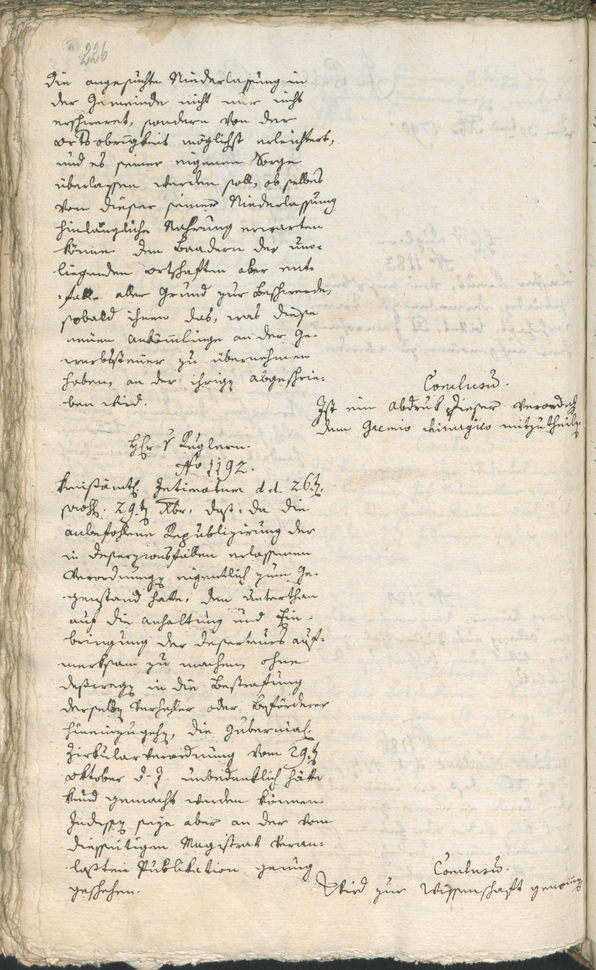 226
die angesuchte Niederlassung in
der Gemeinde nicht nur nicht
erschweret, sondern von der
Ortsobrigkeit möglichst erleichtert,
und es seiner eigenen Sorge
überlassen werden soll, ob selbes
von dieser seiner Niederlassung
hinlängliche Nahrung erwarten
könne. Den Baadern der um-
liegenden Ortschaften aber ent-
falle aller Grund zur Beschwerde,
sobald ihnen das, was diese
neuen Ankömmlinge an der Ge-
werbssteuer zu übernehmen
haben, an der ihrigen abgeschrie-
ben wird.
Conclusum.
Ist ein Abdruck dieser Verordng
dem Gremio chirurgico mitzutheilen
Hr. v Kuglern.
No 1192.
Kreisämtl. Intimatum d.d. 26ten
29ten Xbr, daß, da die
anbefohlene Republizirung der
in Deserzionsfällen erlassenen
Verordnungen eigentlich zum Ge-
genstand hatte, den Unterthan
auf die Anhaltung und Ein-
bringung der Deserteurs auf-
merksam zu machen, ohne
deßwegen in die Bestrafung
derselben Verhehler oder Beförderer
hineinzugehen, die Gubernial
Zirkularverordnung vom 29ten
Oktober d. J. unbedenklich hätte
kund gemacht werden können.
Indessen seye aber an der vom
diesseitigen Magistrat veran-
laßten Publikation genug
geschehen.
Conclusum.
Wird zur Wissenschaft genommen